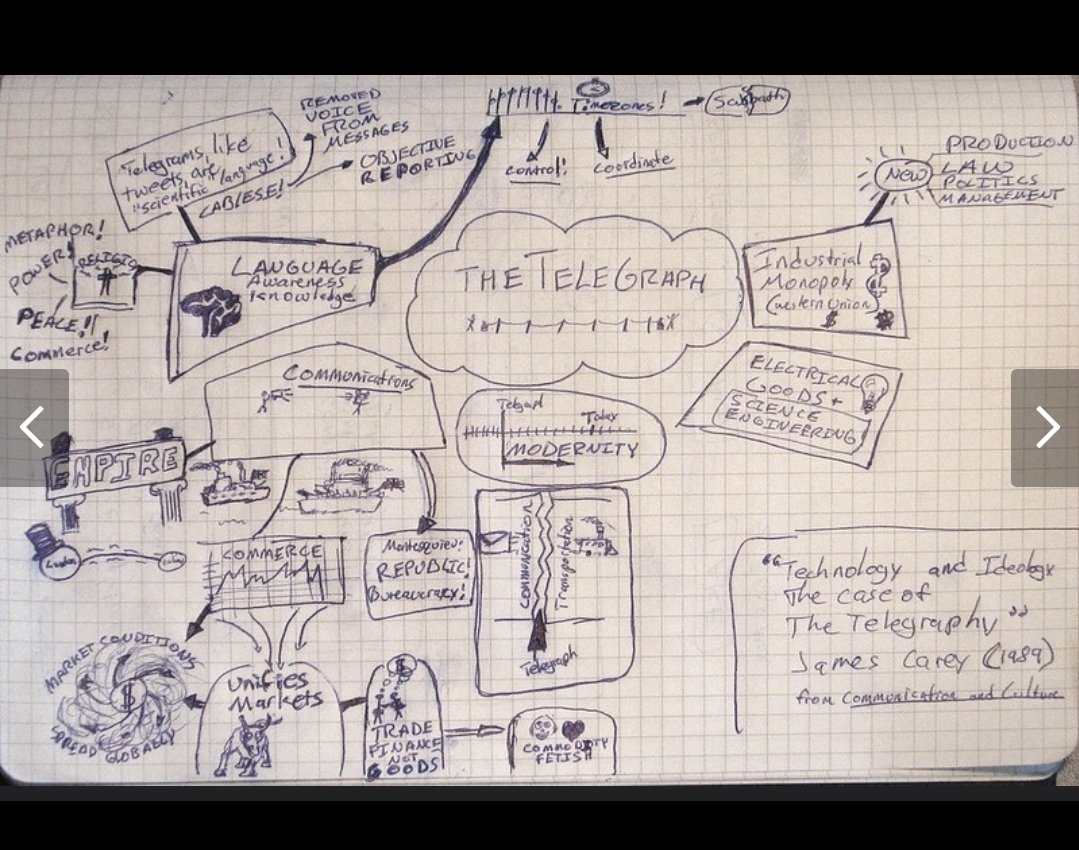 REMOVED
VOICE
FROM
MESSAGES
Telegrams, like
tweets, are
"scientific language"!
CABLESE!
OBJECTIVE
REPORTING
Timezones!
Sabbath
control!
coordinate
NEW
PRODUCTION
LAW
POLITICS
MANAGEMENT
METAPHOR!
POWER!
PEACE!!
Commerce!
RELIGION
LANGUAGE
Awareness
Knowledge
THE TELEGRAPH
Industrial
Monopoly
(western union)
$
ELECTRICAL
GOODS +
SCIENCE
ENGINEERING!
Communications
Today
MODERNITY
EMPIRE
London
COMMERCE
Montesquieu:
REPUBLIC!
Bureaucracy!
COMMUNICATION
Transportation
Telegraph
MARKET CONDITIONS
$
SPREAD GLOBALLY
unifies
Markets
$
TRADE
FINANCE
NOT
GOODS
COMMODITY
FETISH
"Technology and Ideology
The case of
The Telegraphy"
James Carey (1989)
from Communication and Culture